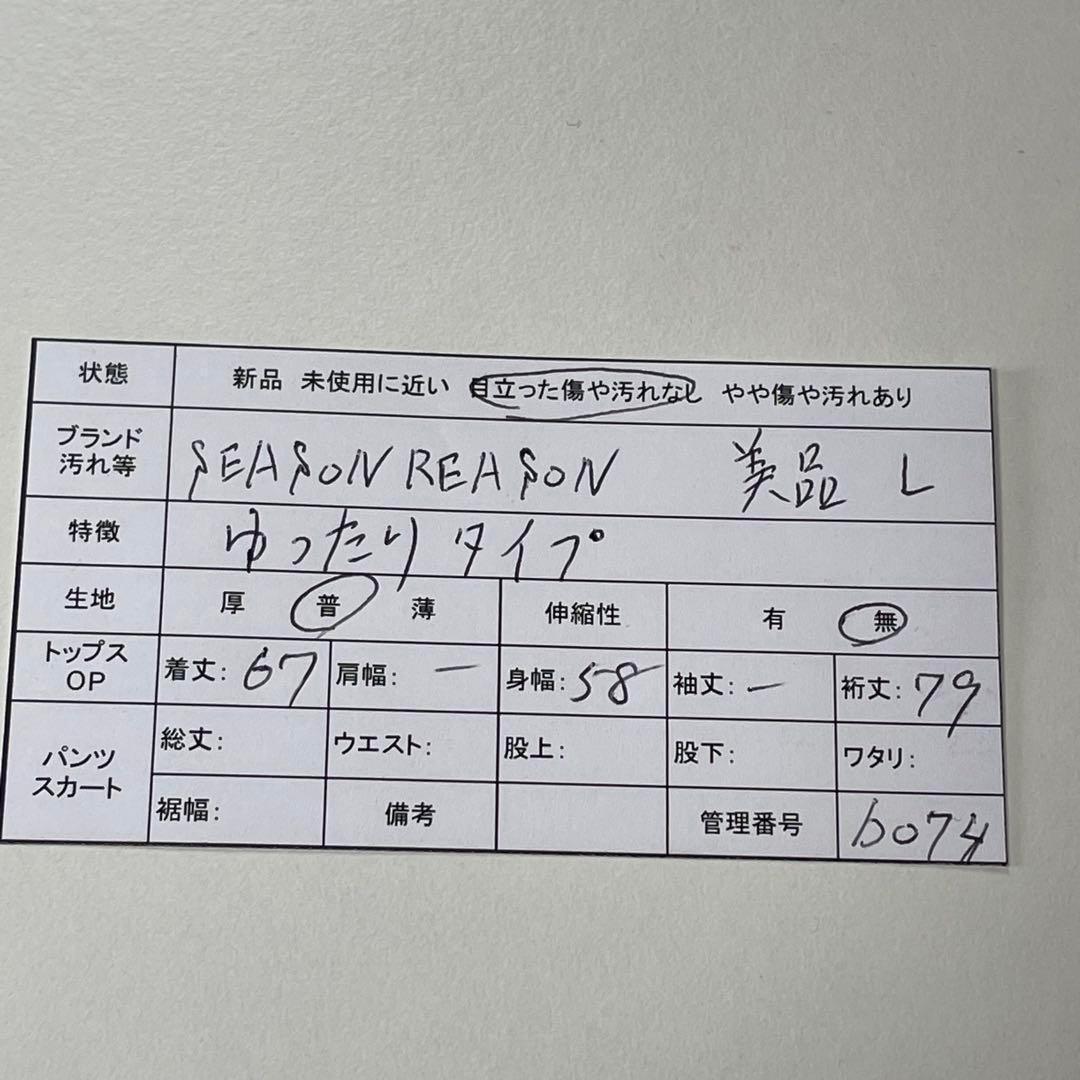 状態 新品 未使用に近い 目立った傷や汚れなし やや傷や汚れあり
ブランド
汚れ等 SEASON REASON 美品 L
特徴 ゆったりタイプ
生地 厚 普 薄 伸縮性 有 無
トップス
OP 着丈: 67 肩幅: — 身幅: 58 袖丈: — 裄丈: 79
パンツ
スカート 総丈: ウエスト: 股上: 股下: ワタリ:
裾幅: 備考 管理番号 b074